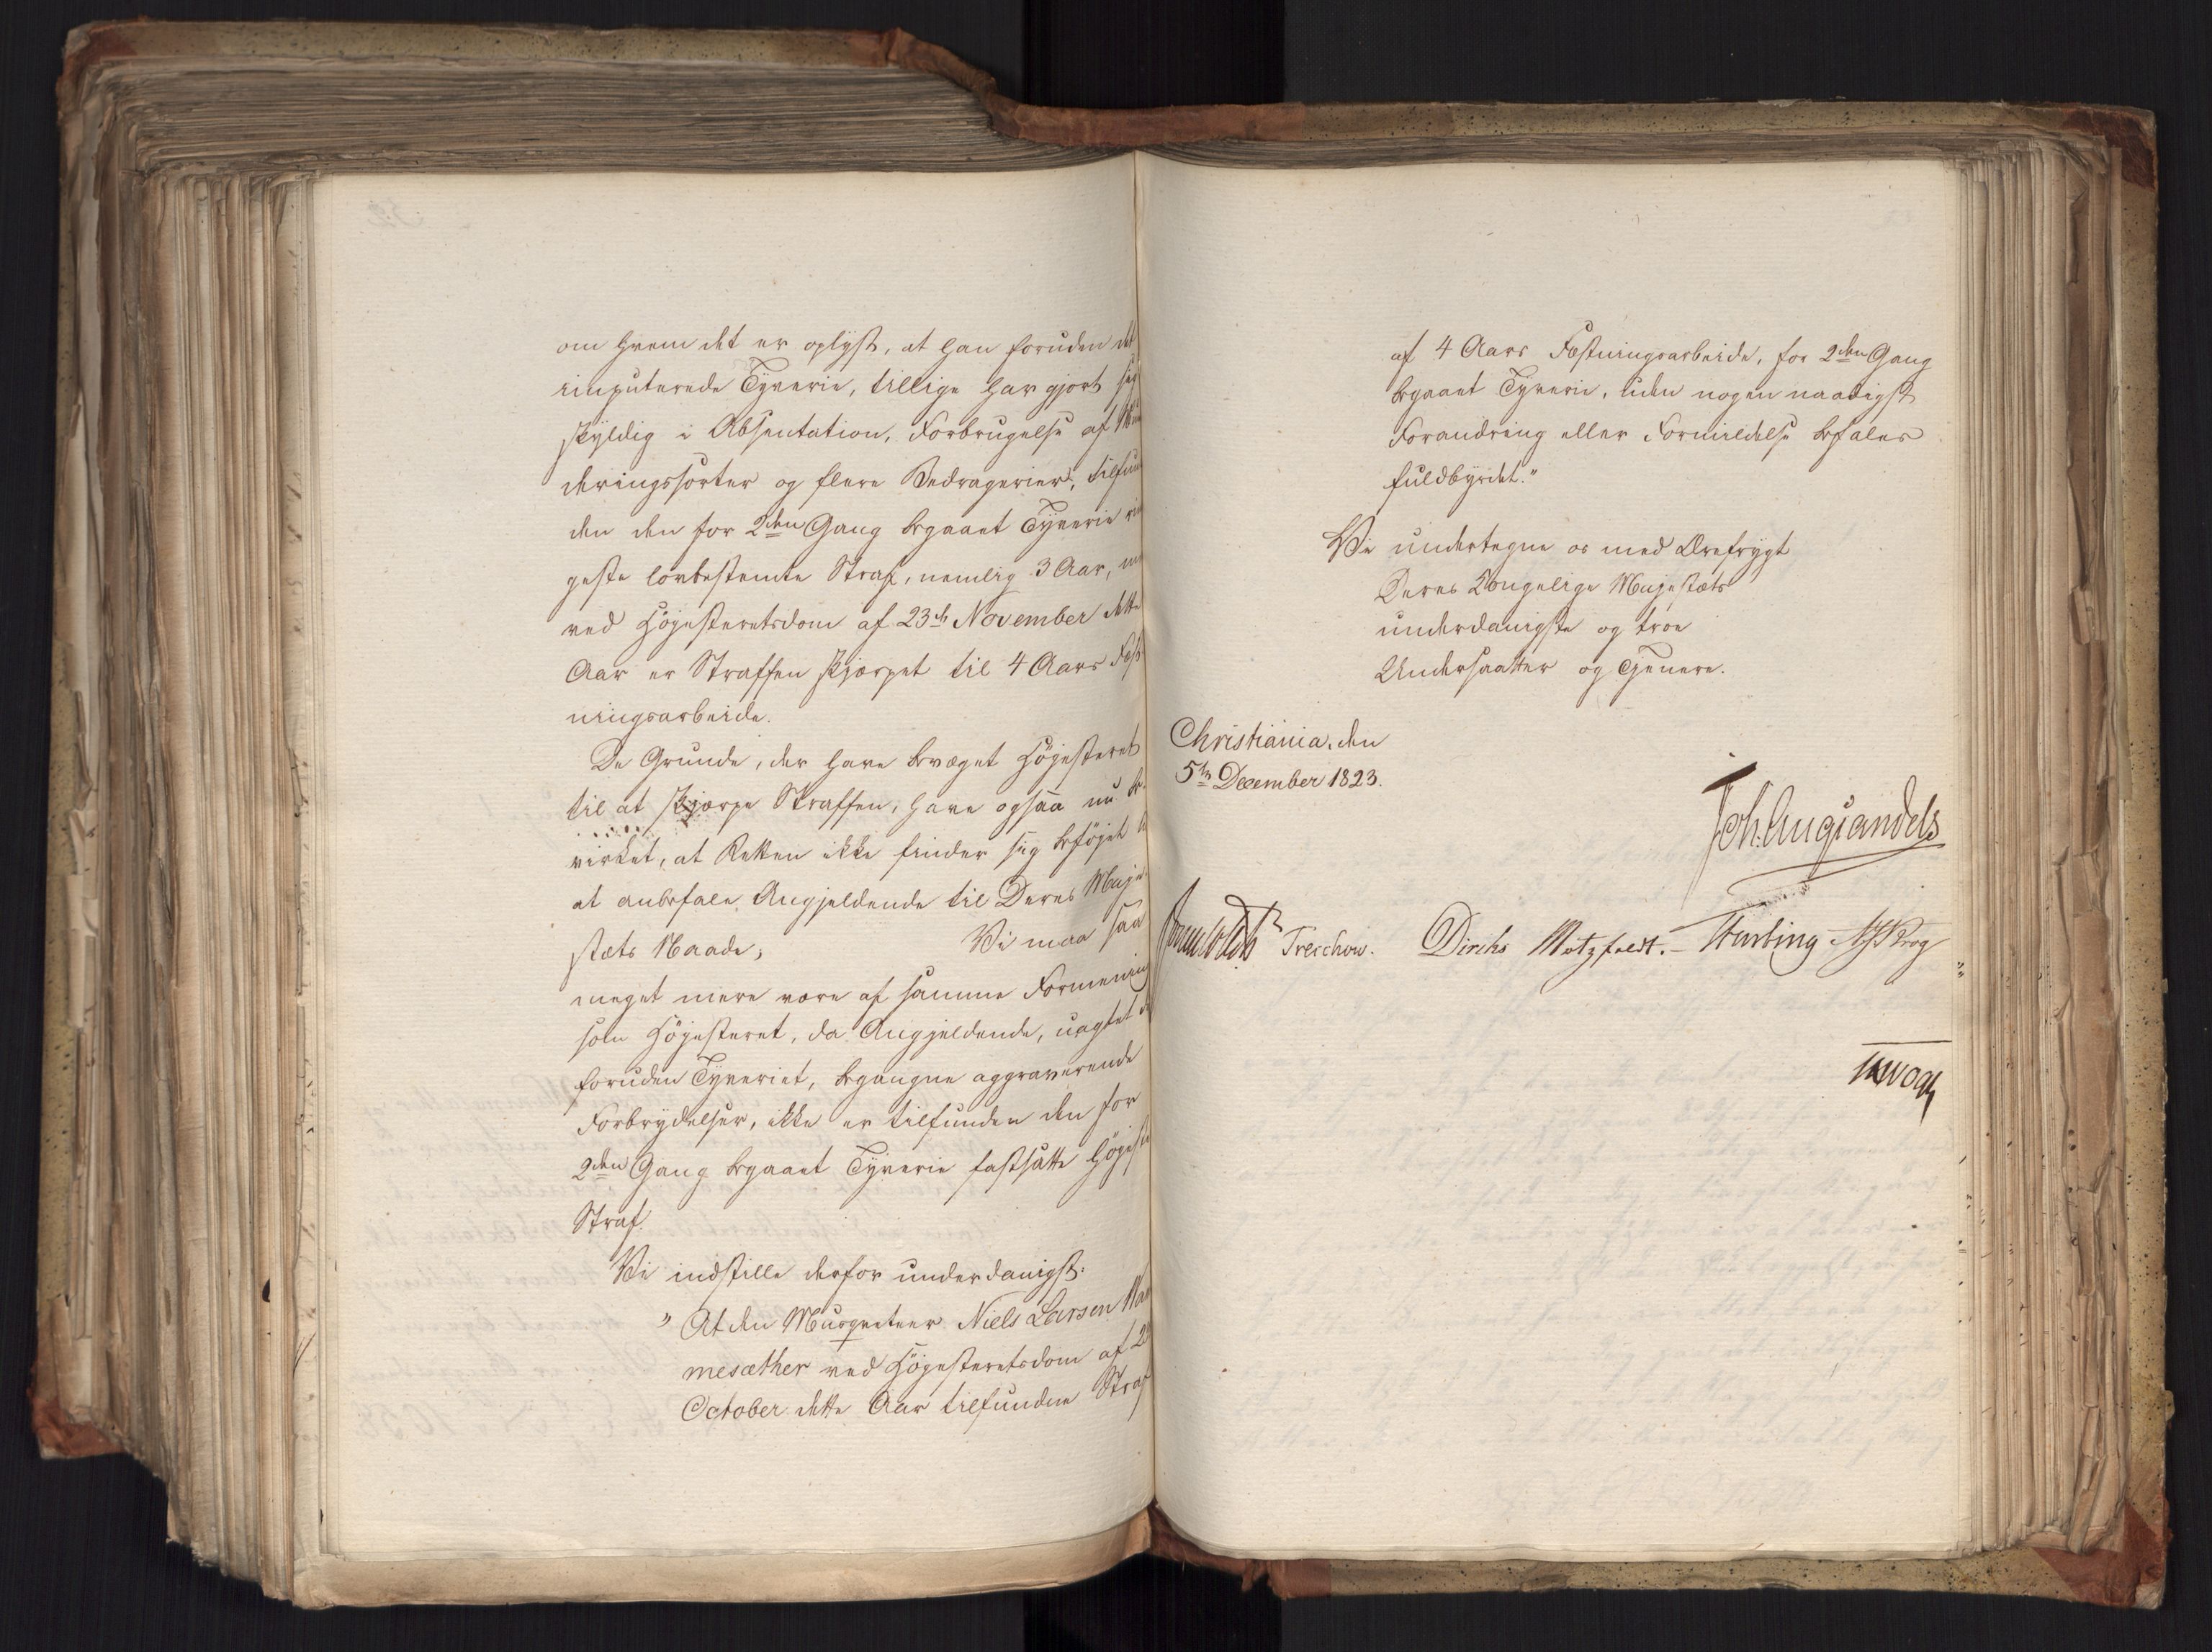 om hvem det er oplyst, at han foruden det
imputerede Tyverie, tillige har gjort sig
skyldig i Absentation, Forbrugelse af Mun
deringssorter og flere Bedragerier, tilfun
den den for 2den Gang begaaet Tyverie rin
geste lovbestemte Straf, nemlig 3 Aar, men
ved Höjesteretsdom af 23de November dette
Aar er Straffen skjærpet til 4 Aars Fæst
ningsarbeide.
De Grunde, der have bevæget Höjesteret
til at skjærpe Straffen, have ogsaa nu be
virket, at Retten ikke finder sig beföjet
at anbefale Angjeldende til Deres Maje
stæts Naade;
Vi maa saa
meget mere være af samme Formening
som Höjesteret, da Angjeldende, uagtet
foruden Tyveriet, begangne aggraverende
Forbrydelser, ikke er tilfunden den for
2den Gang begaaet Tyverie fastsatte höjeste
Straf.
Vi indstille derfor underdanigst:
" At den Musqueteer Niels Larsen
mesæther ved Höjesteretsdom af
October dette Aar tilfundne Straf
af 4 Aars Fæstningsarbeide, for 2den Gang
begaaet Tyverie, uden nogen naadigst
Forandring eller Formildelse befales
fuldbyrdet."
Vi undertegne os med Ærefrygt
Deres Kongelige Majestæts
underdanigste og troe
Undersaatter og Tjenere.
Christiania, den
5te December 1823.
Joh. Aug. Sandels
Sommerhielm Treschow. Diriks Motzfeldt. Krog